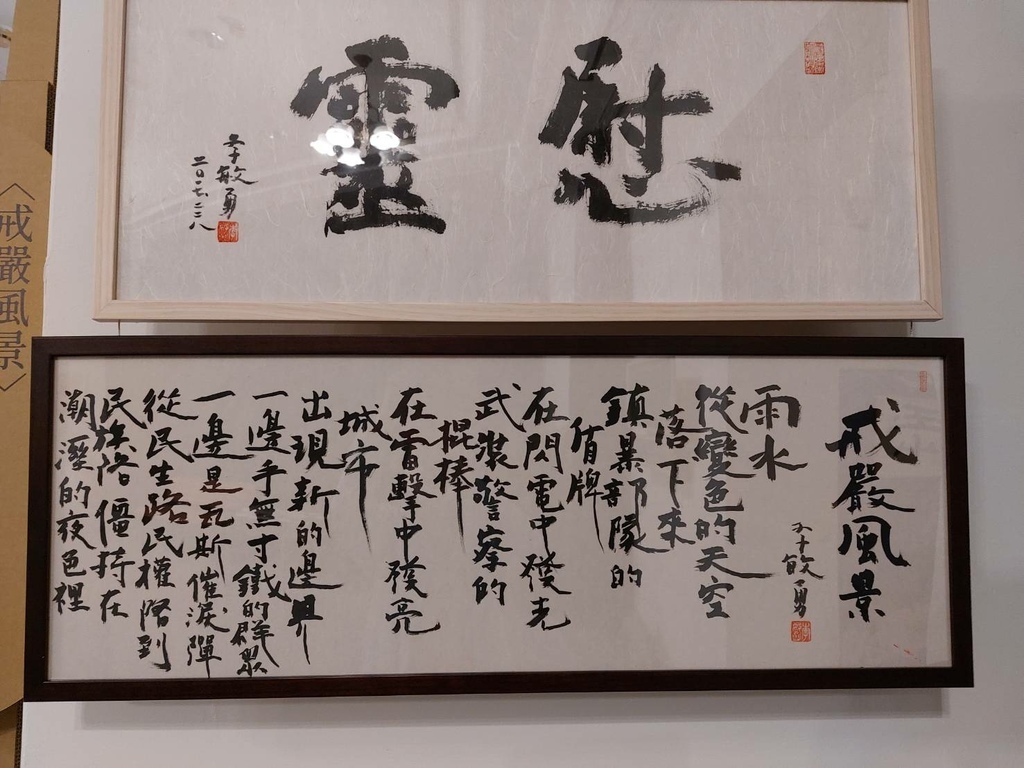 慰靈
李敏勇
戒嚴風景
李敏勇
雨水
從變色的天空
落下來
鎮暴部隊的
盾牌
在閃電中發光
武裝警察的
棍棒
在雷擊中發亮
城市
出現新的邊界
一邊手無寸鐵的群眾
一邊是瓦斯催淚彈
從民生路民權路到
民族路僵持在
潮溼的夜色裡
〈戒嚴風景〉